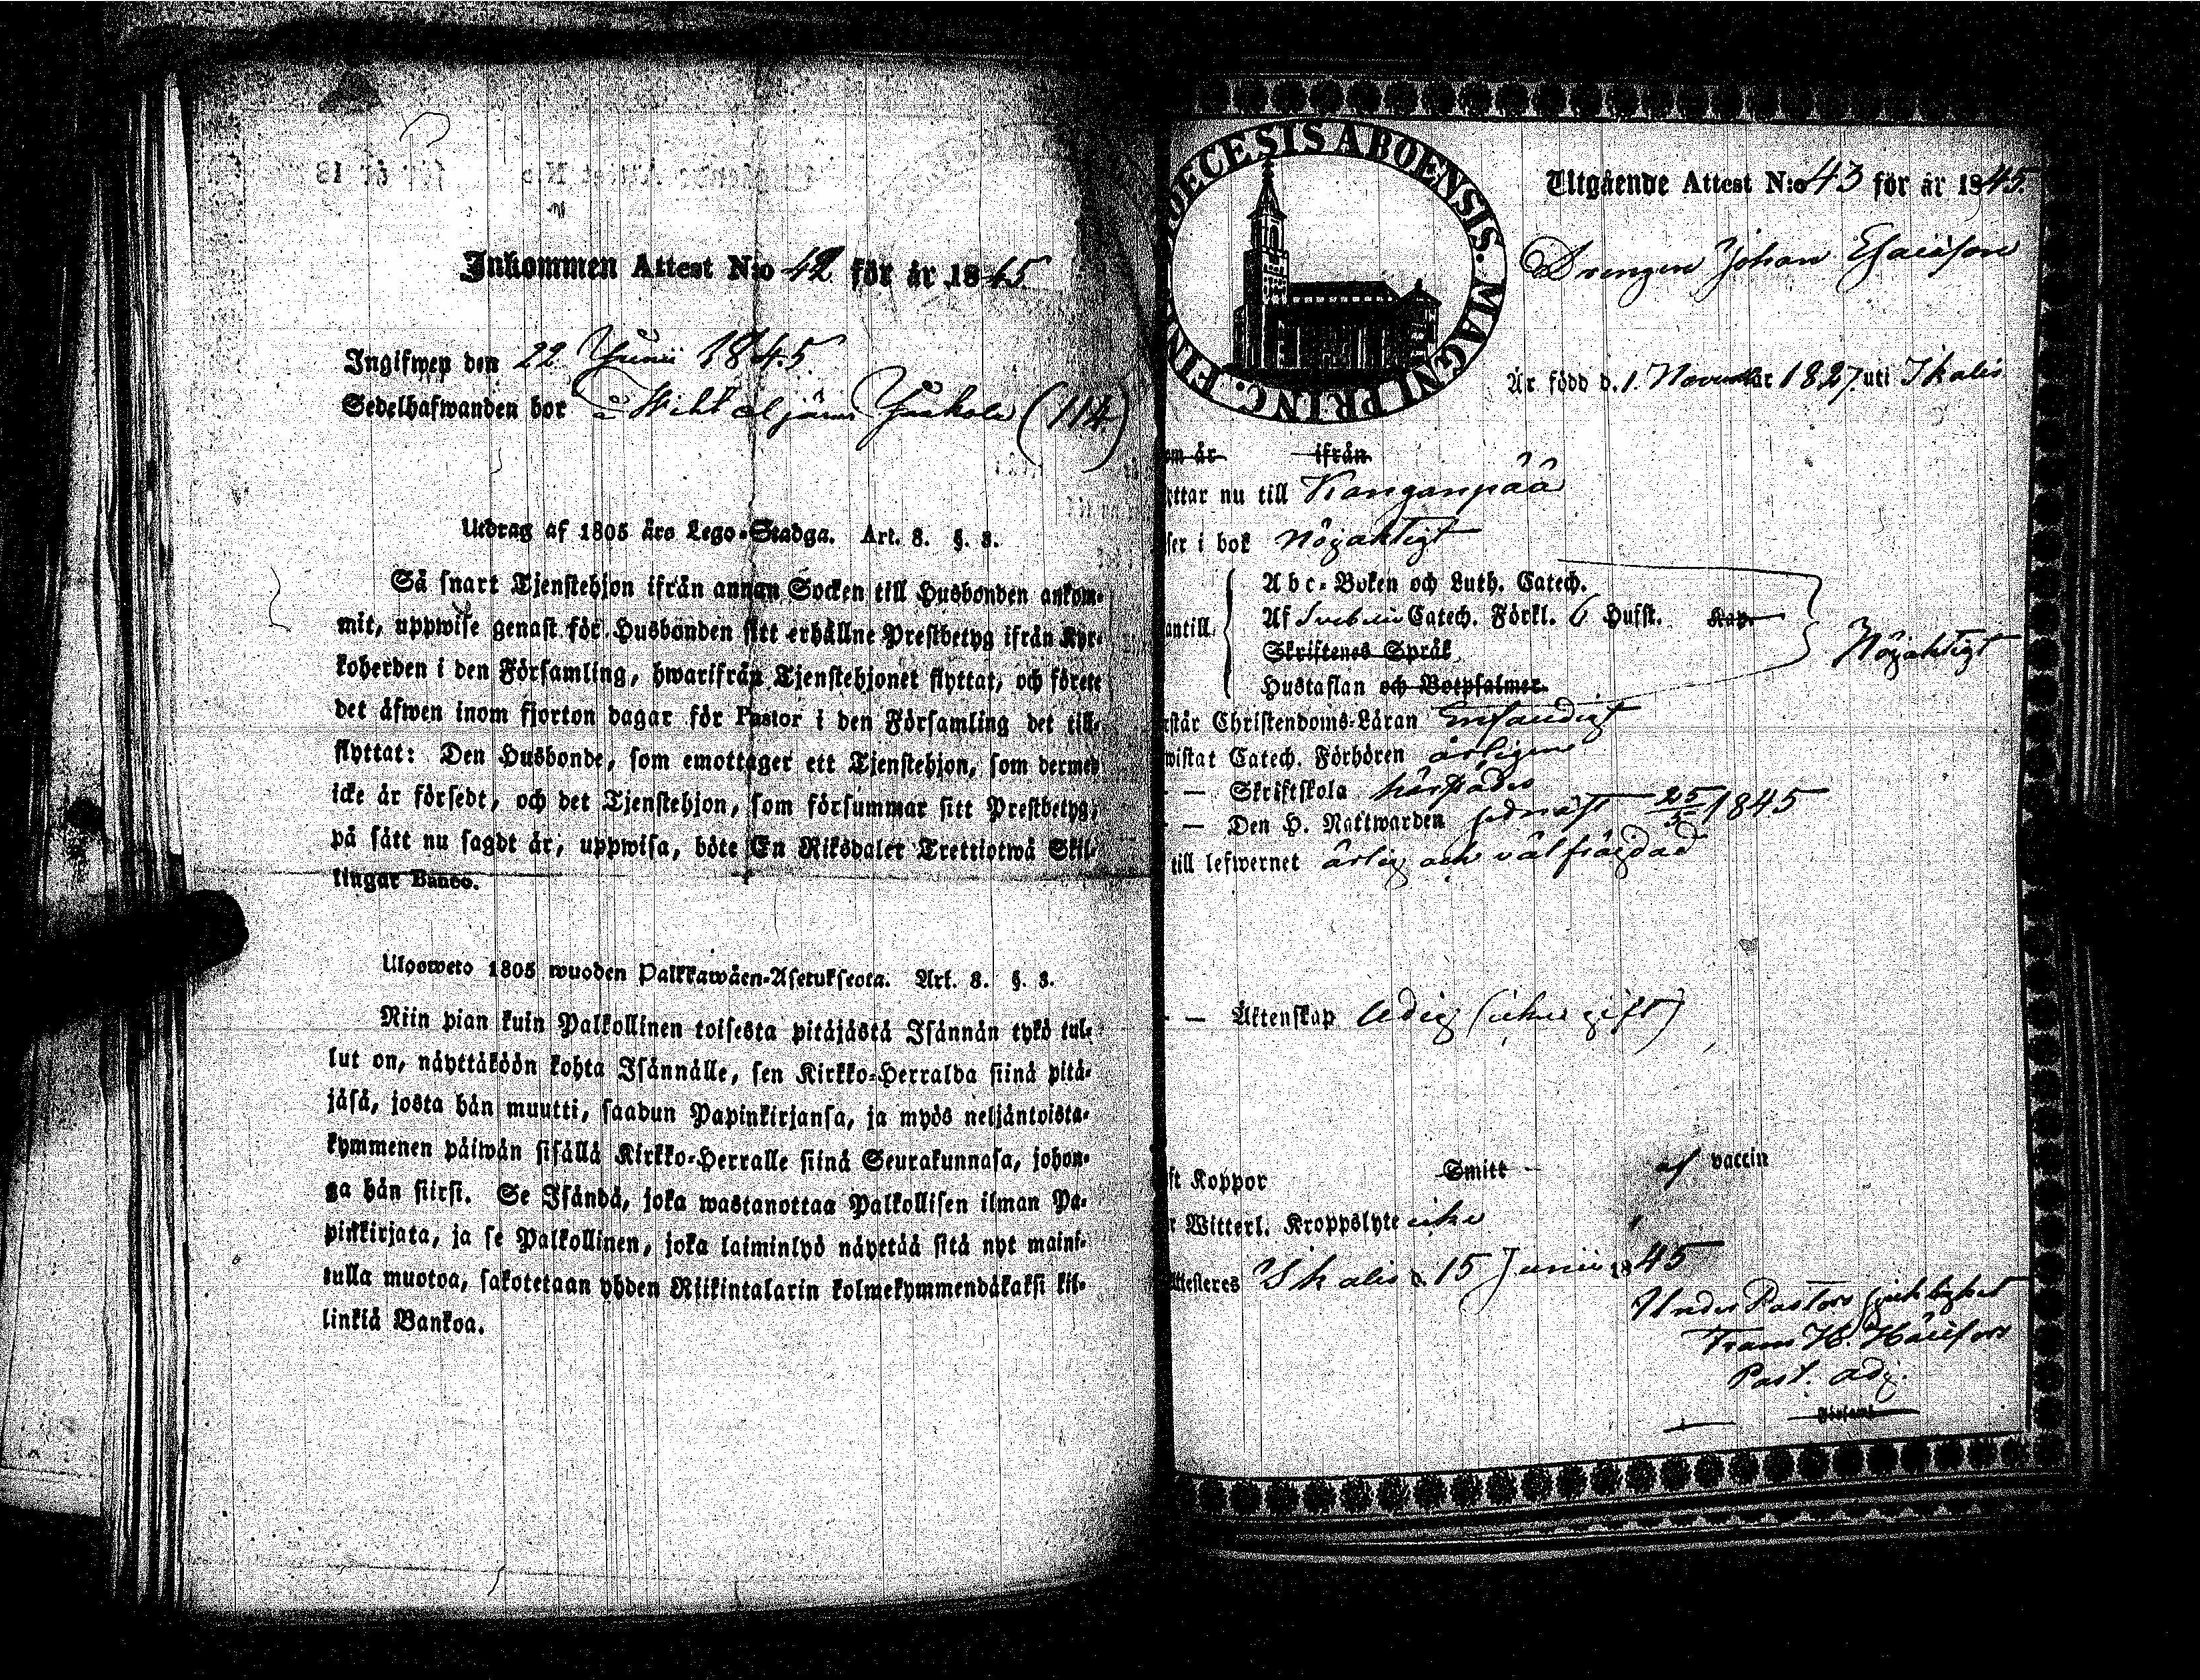 Inkommen Attest N:o 42 för år 1845.
Ingifwen den 22 Junii 1845.
Sedelhafwanden bor å Wihteljärvi Juhola (114)
Utdrag af 1805 års Lego-Stadga. Art. 8. §. 3.
Så snart Tjenstehjon ifrån annan Socken till Husbonden ankom-
mit, uppwise genast för Husbonden sitt erhållne Prestbetyg ifrån Kyr-
koherden i den Församling, hwarifrån Tjenstehjonet flyttat, och förete
det äfwen inom fjorton dagar för Pastor i den Församling det till-
flyttat: Den Husbonde, som emottager ett Tjenstehjon, som dermed
icke är försedt, och det Tjenstehjon, som försummar sitt Prestbetyg,
på sätt nu sagdt är, uppwisa, böte En Riksdaler Trettiotwå Skil-
lingar Banco.
Ulosweto 1805 wuoden Palkkawäen-Asetuksesta. Art. 8. §. 3.
Niin pian kuin Palkollinen toisesta pitäjästä Isännän tykö tul-
lut on, näyttäköön kohta Isännälle, sen Kirkko-Herralda siinä pitä-
jäsä, josta hän muutti, saadun Papinkirjansa, ja myös neljäntoista-
kymmenen päiwän sisällä Kirkko-Herralle siinä Seurakunnasa, johon-
ga hän siirsi. Se Isändä, joka wastanottaa Palkollisen ilman Pa-
pinkirjata, ja se Palkollinen, joka laiminlyö näyttää sitä nyt maini-
tulla muotoa, sakotetaan yhden Riikintalarin kolmekymmendäkaksi kil-
linkiä Bankoa.
DECESIS ABOENSIS. MAGNI PRINC. FIN
Utgående Attest N:o 43 för år 1845.
Drengen Johan Esaiæson
Är född d. 1 November 1827. uti Ikalis
om år ifrån
ttar nu till Kanganpää
ser i bok Nöjaktigt
antill
Abc-Boken och Luth. Catech.
Af Svebelii Catech. Förkl. 6 Hufst. Kap.
Skriftenes Språk
Hustaflan och Botpsalmer.
Nöjaktigt
står Christendoms-Läran Enfaldigt
wistat Catech. Förhören årligen
— Skriftskola härstädes
— Den H. Nattwarden sednast 25/5 1845
till lefwernet ärlig och välfräjdad
— Äktenskap ledig (icke gift)
ft Koppor Smitt af vaccin
r Witterl. Kroppslyte icke
Attesteres Ikalis d. 15 Junii 1845
Under Pastors sjuklighet
Frans H.
Past. adj.
Församl.